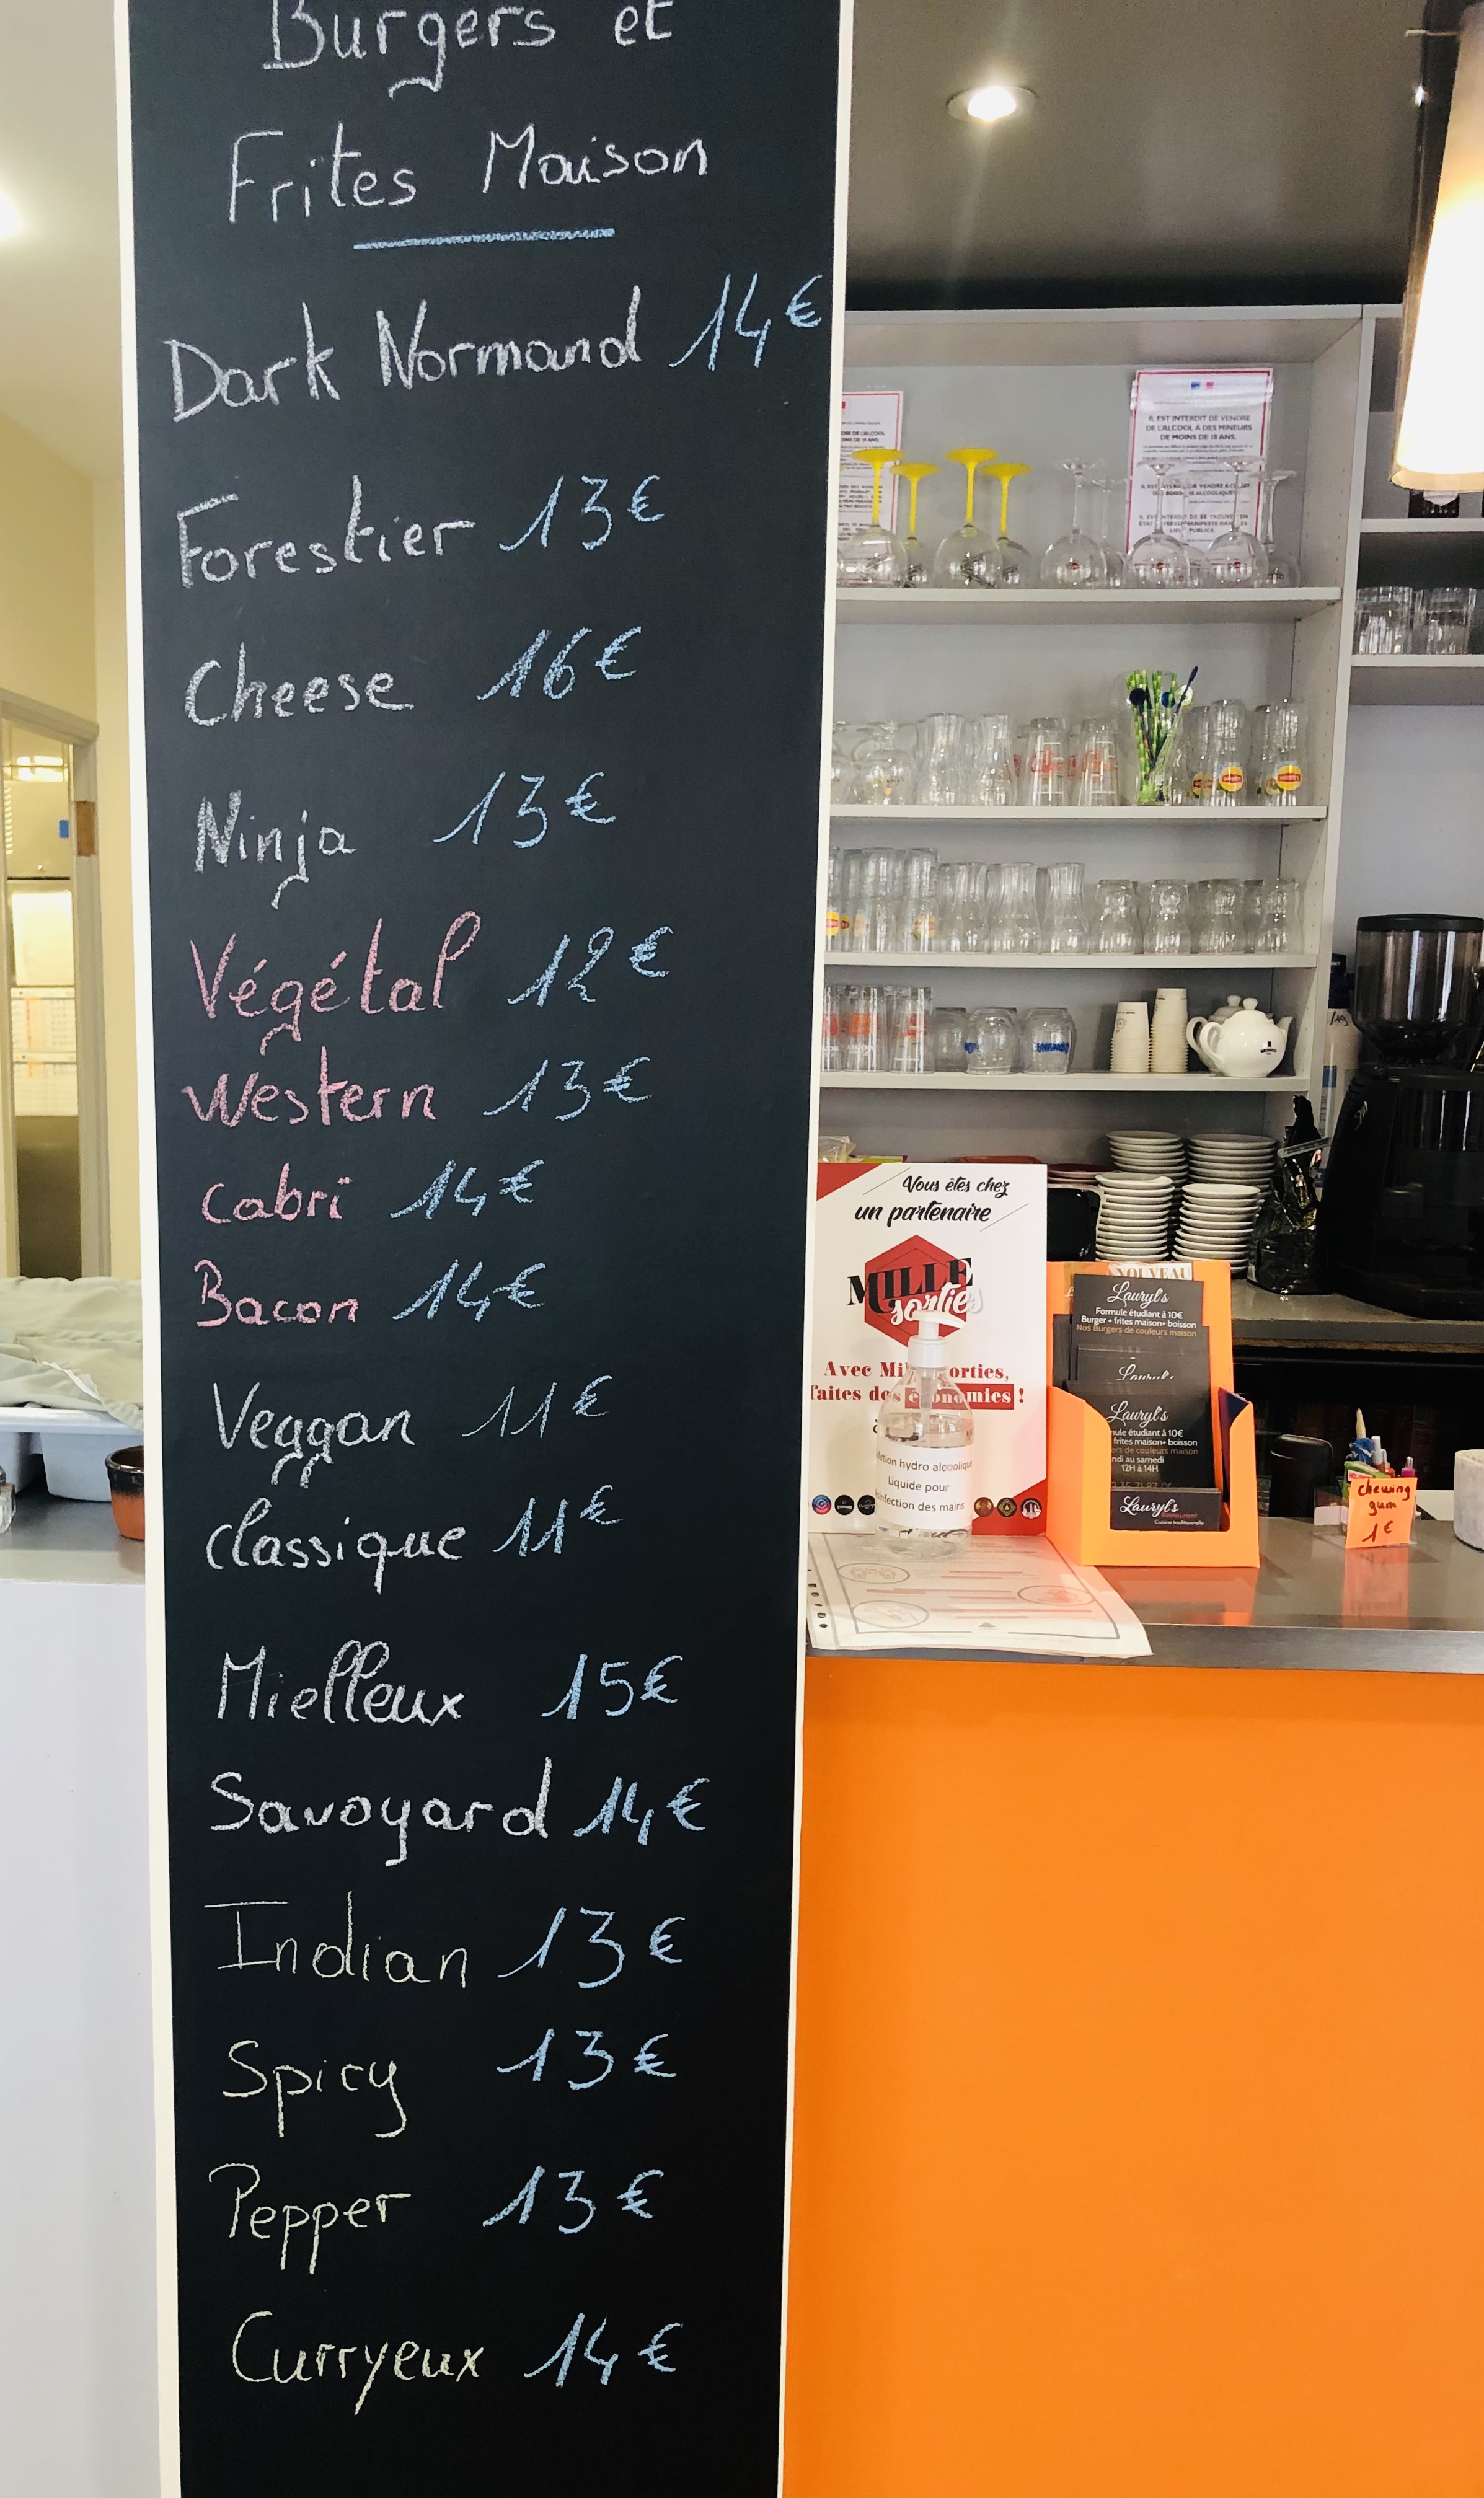 Burgers et
Frites Maison
Dark Normand 14€
Forestier 13€
Cheese 16€
Ninja 13€
Végétal 12€
Western 13€
Cabri 14€
Bacon 14€
Veggan 11€
classique 11€
Mielleux 15€
Savoyard 14€
Indian 13€
Spicy 13€
Pepper 13€
Curryeux 14€
IL EST INTERDIT DE VENDRE
DE L'ALCOOL À DES MINEURS
DE MOINS DE 18 ANS.
Vous êtes chez
un partenaire
MILLE
sorties
Avec Mi orties,
faites des économies !
lution hydro alcoolique
Liquide pour
infection des mains
NOUVEAU
Lauryl's
Formule étudiant à 10€
Burger + frites maison+ boisson
Nos Burgers de couleurs maison
Lauryl's
mule étudiant à 10€
frites maison+ boisson
ers de couleurs maison
ndi au samedi
12H à 14H
Lauryl's
Restaurant
Cuisine traditionnelle
chewing
gum
1€